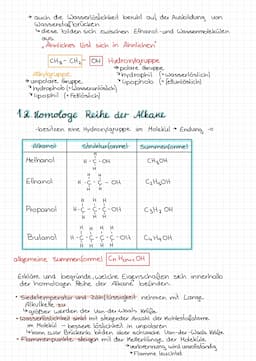 → auch die Wasserlöslichkeit beruht auf der Ausbildung von Wasserstoffbrücken
→ diese bilden sich zwischen Ethanol- und Wassermolekülen aus
"Ähnliches löst sich in Ähnlichem"
CH₃ - CH₂ - OH Hydroxylgruppe
Alkylgruppe
→ unpolare Gruppe
→ hydrophob (= wasserunlöslich)
→ lipophil (= fettlöslich)
→ polare Gruppe
→ hydrophil (= wasserlöslich)
→ lipophob (= fettunlöslich)
1.2 Homologe Reihe der Alkane
- besitzen eine Hydroxylgruppe im Molekül → Endung -ol
Alkanol Strukturformel Summenformel
Methanol CH₃OH
Ethanol C₂H₅OH
Propanol C₃H₇OH
Butanol C₄H₉OH
allgemeine Summenformel CnH₂n+1OH
Erkläre und begründe, welche Eigenschaften sich innerhalb der homologen Reihe der Alkane befinden.
• Siedetemperatur und Zähflüssigkeit nehmen mit Länge Alkylkette zu
→ größer werden der Van-der-Waals Kräfte
• Wasserlöslichkeit sinkt mit steigender Anzahl der Kohlenstoffatome im Molekül → besser löslich in unpolaren
• Flammenpunkte steigen mit der Kettenlänge, der Molekülle
→ Verbrennung wird unvollständig
→ Flamme leuchtet